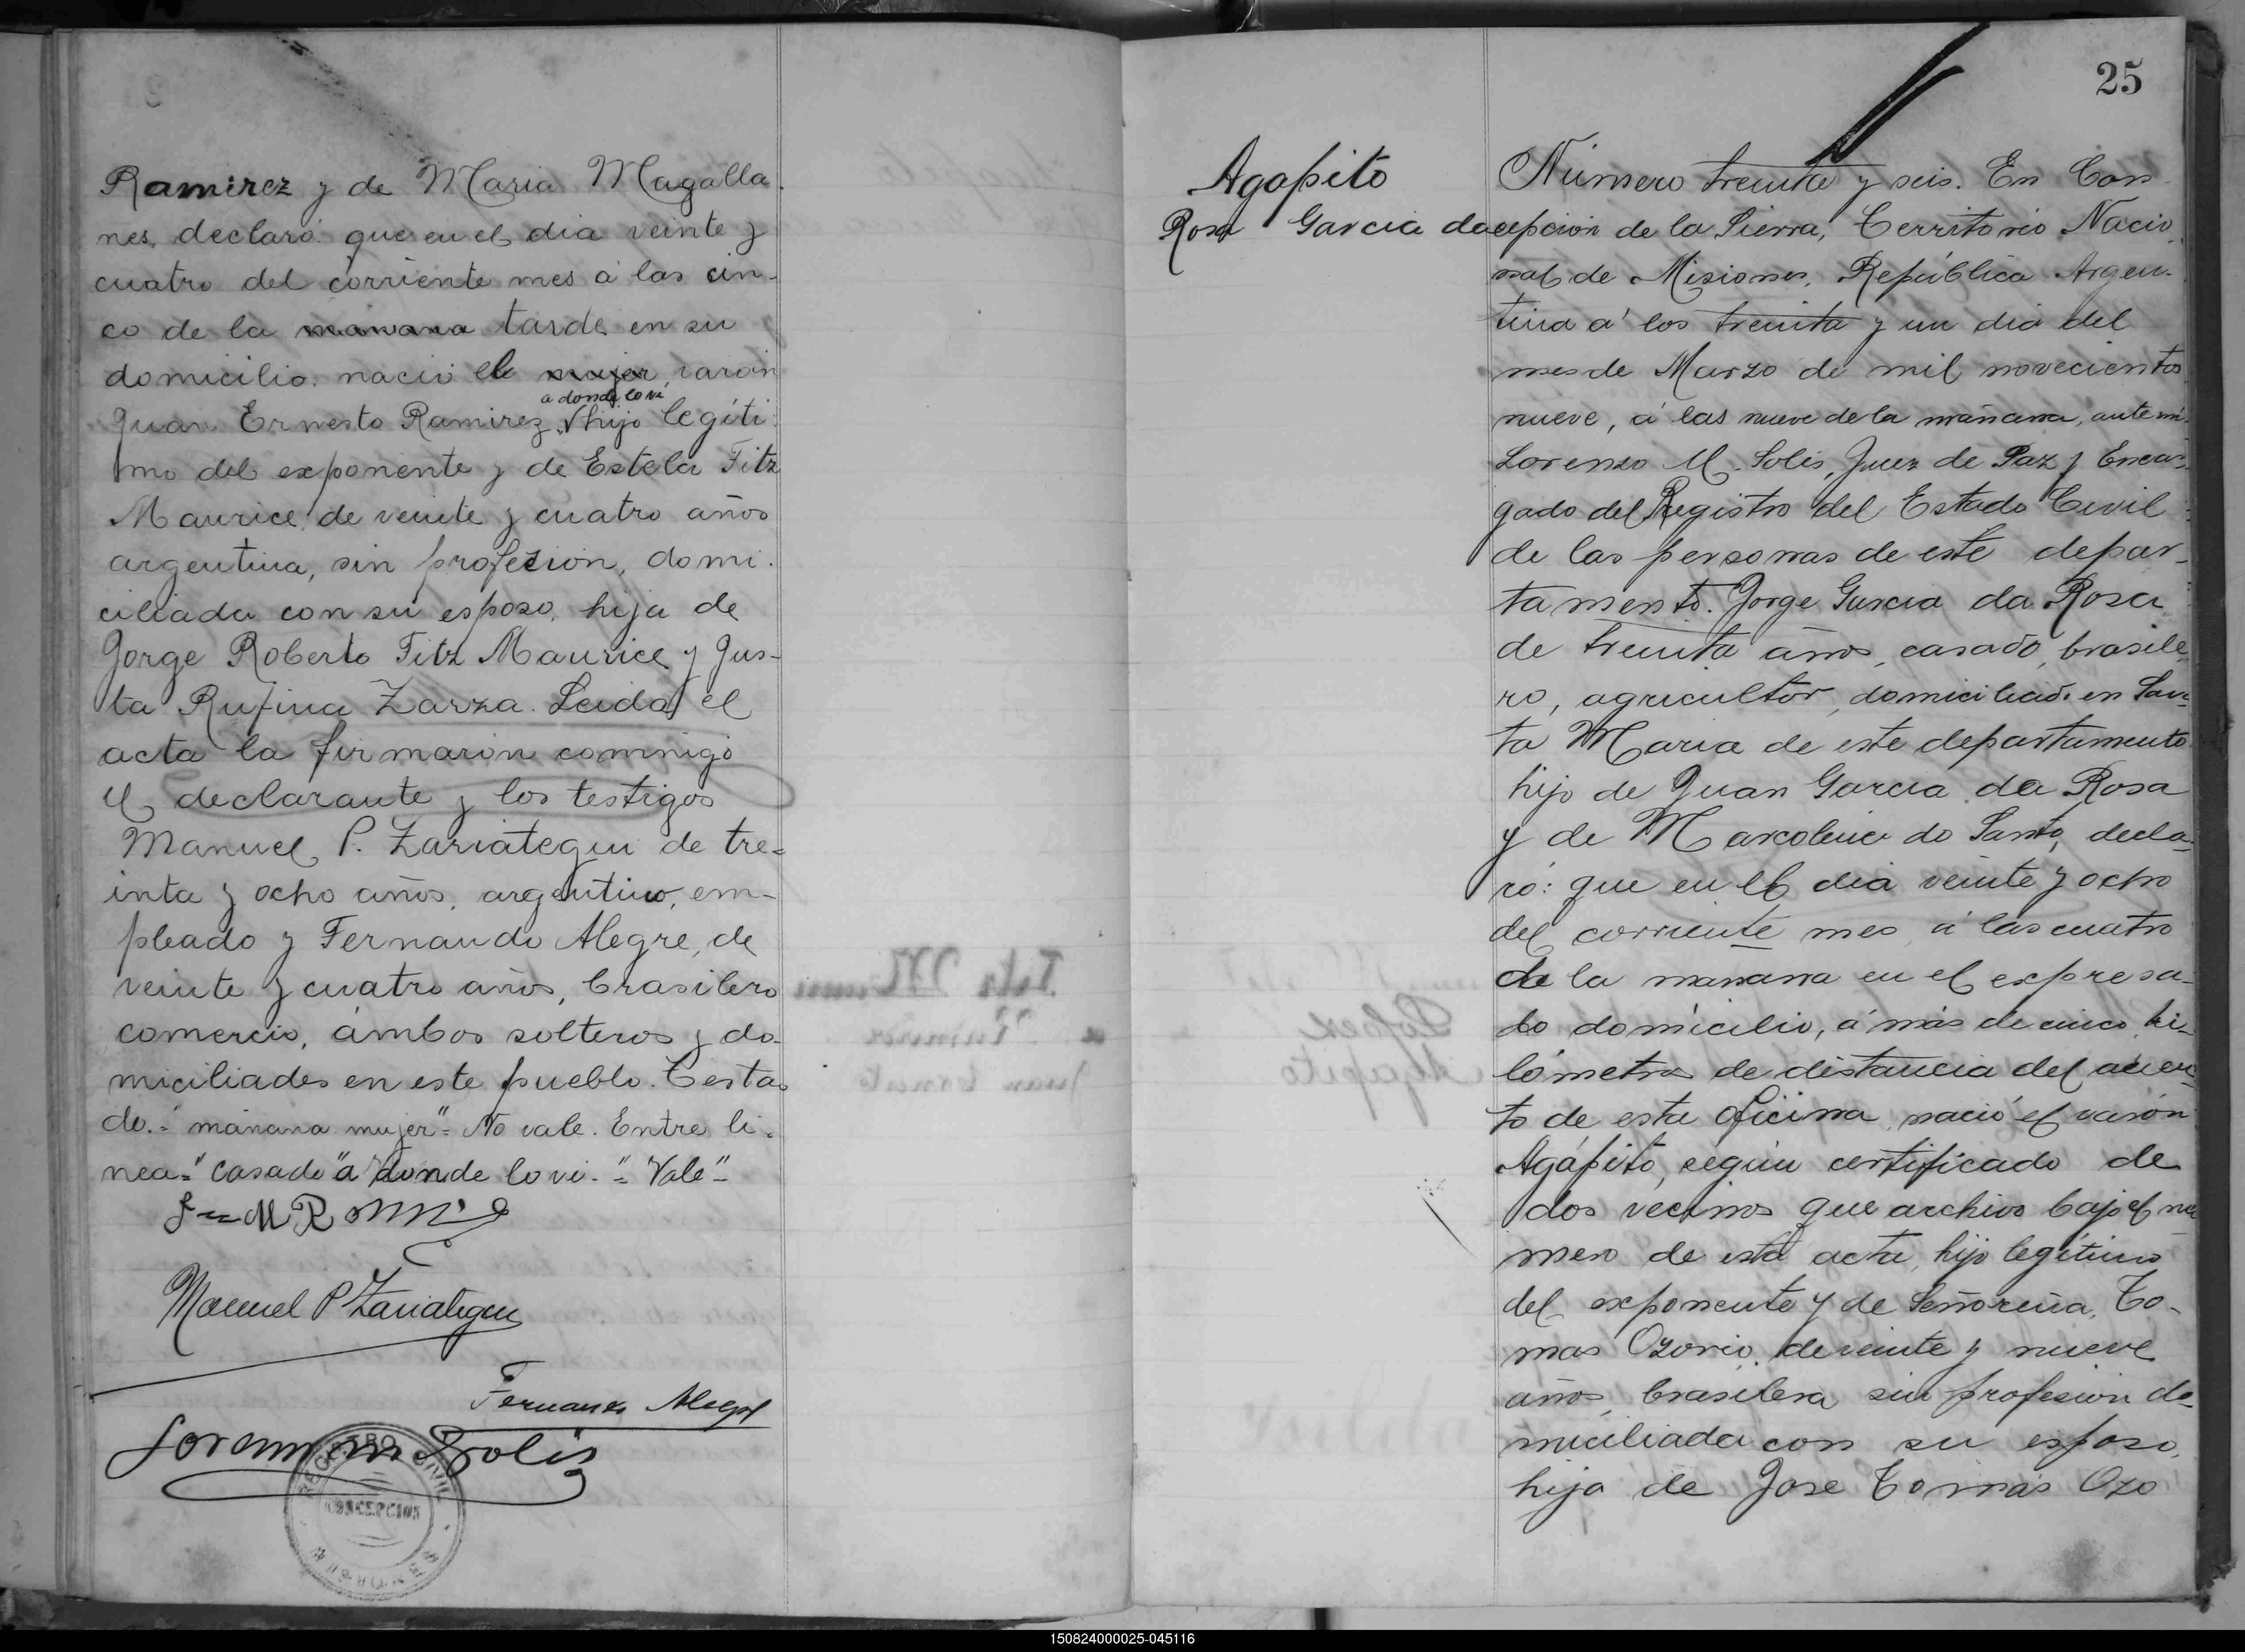 Ramirez y de Maria Magalla
nes, declaró: que en el dia veinte y
cuatro del corriente mes á las cin-
co de la mañana tarde en su
domicilio, nació el mujer, varón
a donde lo vi
Juan Ernesto Ramirez, hijo legíti
mo del exponente y de Estela Fitz
Maurice, de veinte y cuatro años
argentina, sin profesion, domi-
ciliada con su esposo, hija de
Jorge Roberto Fitz Maurice y Jus-
ta Rufina Zarza. Leida el
acta la firmaron conmigo
el declarante y los testigos
Manuel P. Zariategui de tre-
inta y ocho años, argentino, em-
pleado y Fernando Alegre, de
veinte y cuatro años, brasilero
comercio, ámbos solteros y do-
miciliados en este pueblo. Testa
do.- "mañana mujer"- No vale. Entre li-
nea- "casado" "a donde lo vi-" "Vale"-
Manuel P Zariategui
Fernando Alegre
Lorenzo M Solis
REGISTRO CIVIL
CONCEPCION
MISIONES
25
Agapito
Rosa Garcia da
Número treinta y seis. En Con
cepcion de la Sierra, Territorio Nacio
nal de Misiones, República Argen-
tina á los treinta y un dia del
mes de Marzo de mil novecientos
nueve, á las nueve de la mañana, ante mi
Lorenzo M. Solis, Juez de Paz y Encar-
gado del Registro del Estado Civil
de las personas de este depar-
tamento. Jorge Garcia da Rosa
de treinta años, casado, brasile
ro, agricultor, domiciliado en San-
ta Maria de este departamento
hijo de Juan Garcia da Rosa
y de Marcolina do Santo, decla-
ró: que en el dia veinte y ocho
del corriente mes, á las cuatro
de la mañana en el expresa-
do domicilio, á más de cinco ki-
lómetros de distancia del acien-
to de esta oficina, nació el varón
Agápito, según certificado de
dos vecinos que archivo bajo el nu
mero de esta acta, hijo legítimo
del exponente y de Señorina, To-
mas Ozorio, de veinte y nueve
años, brasilera sin profesion do-
miciliada con su esposo,
hija de Jose Tomás Ozo
150824000025-045116